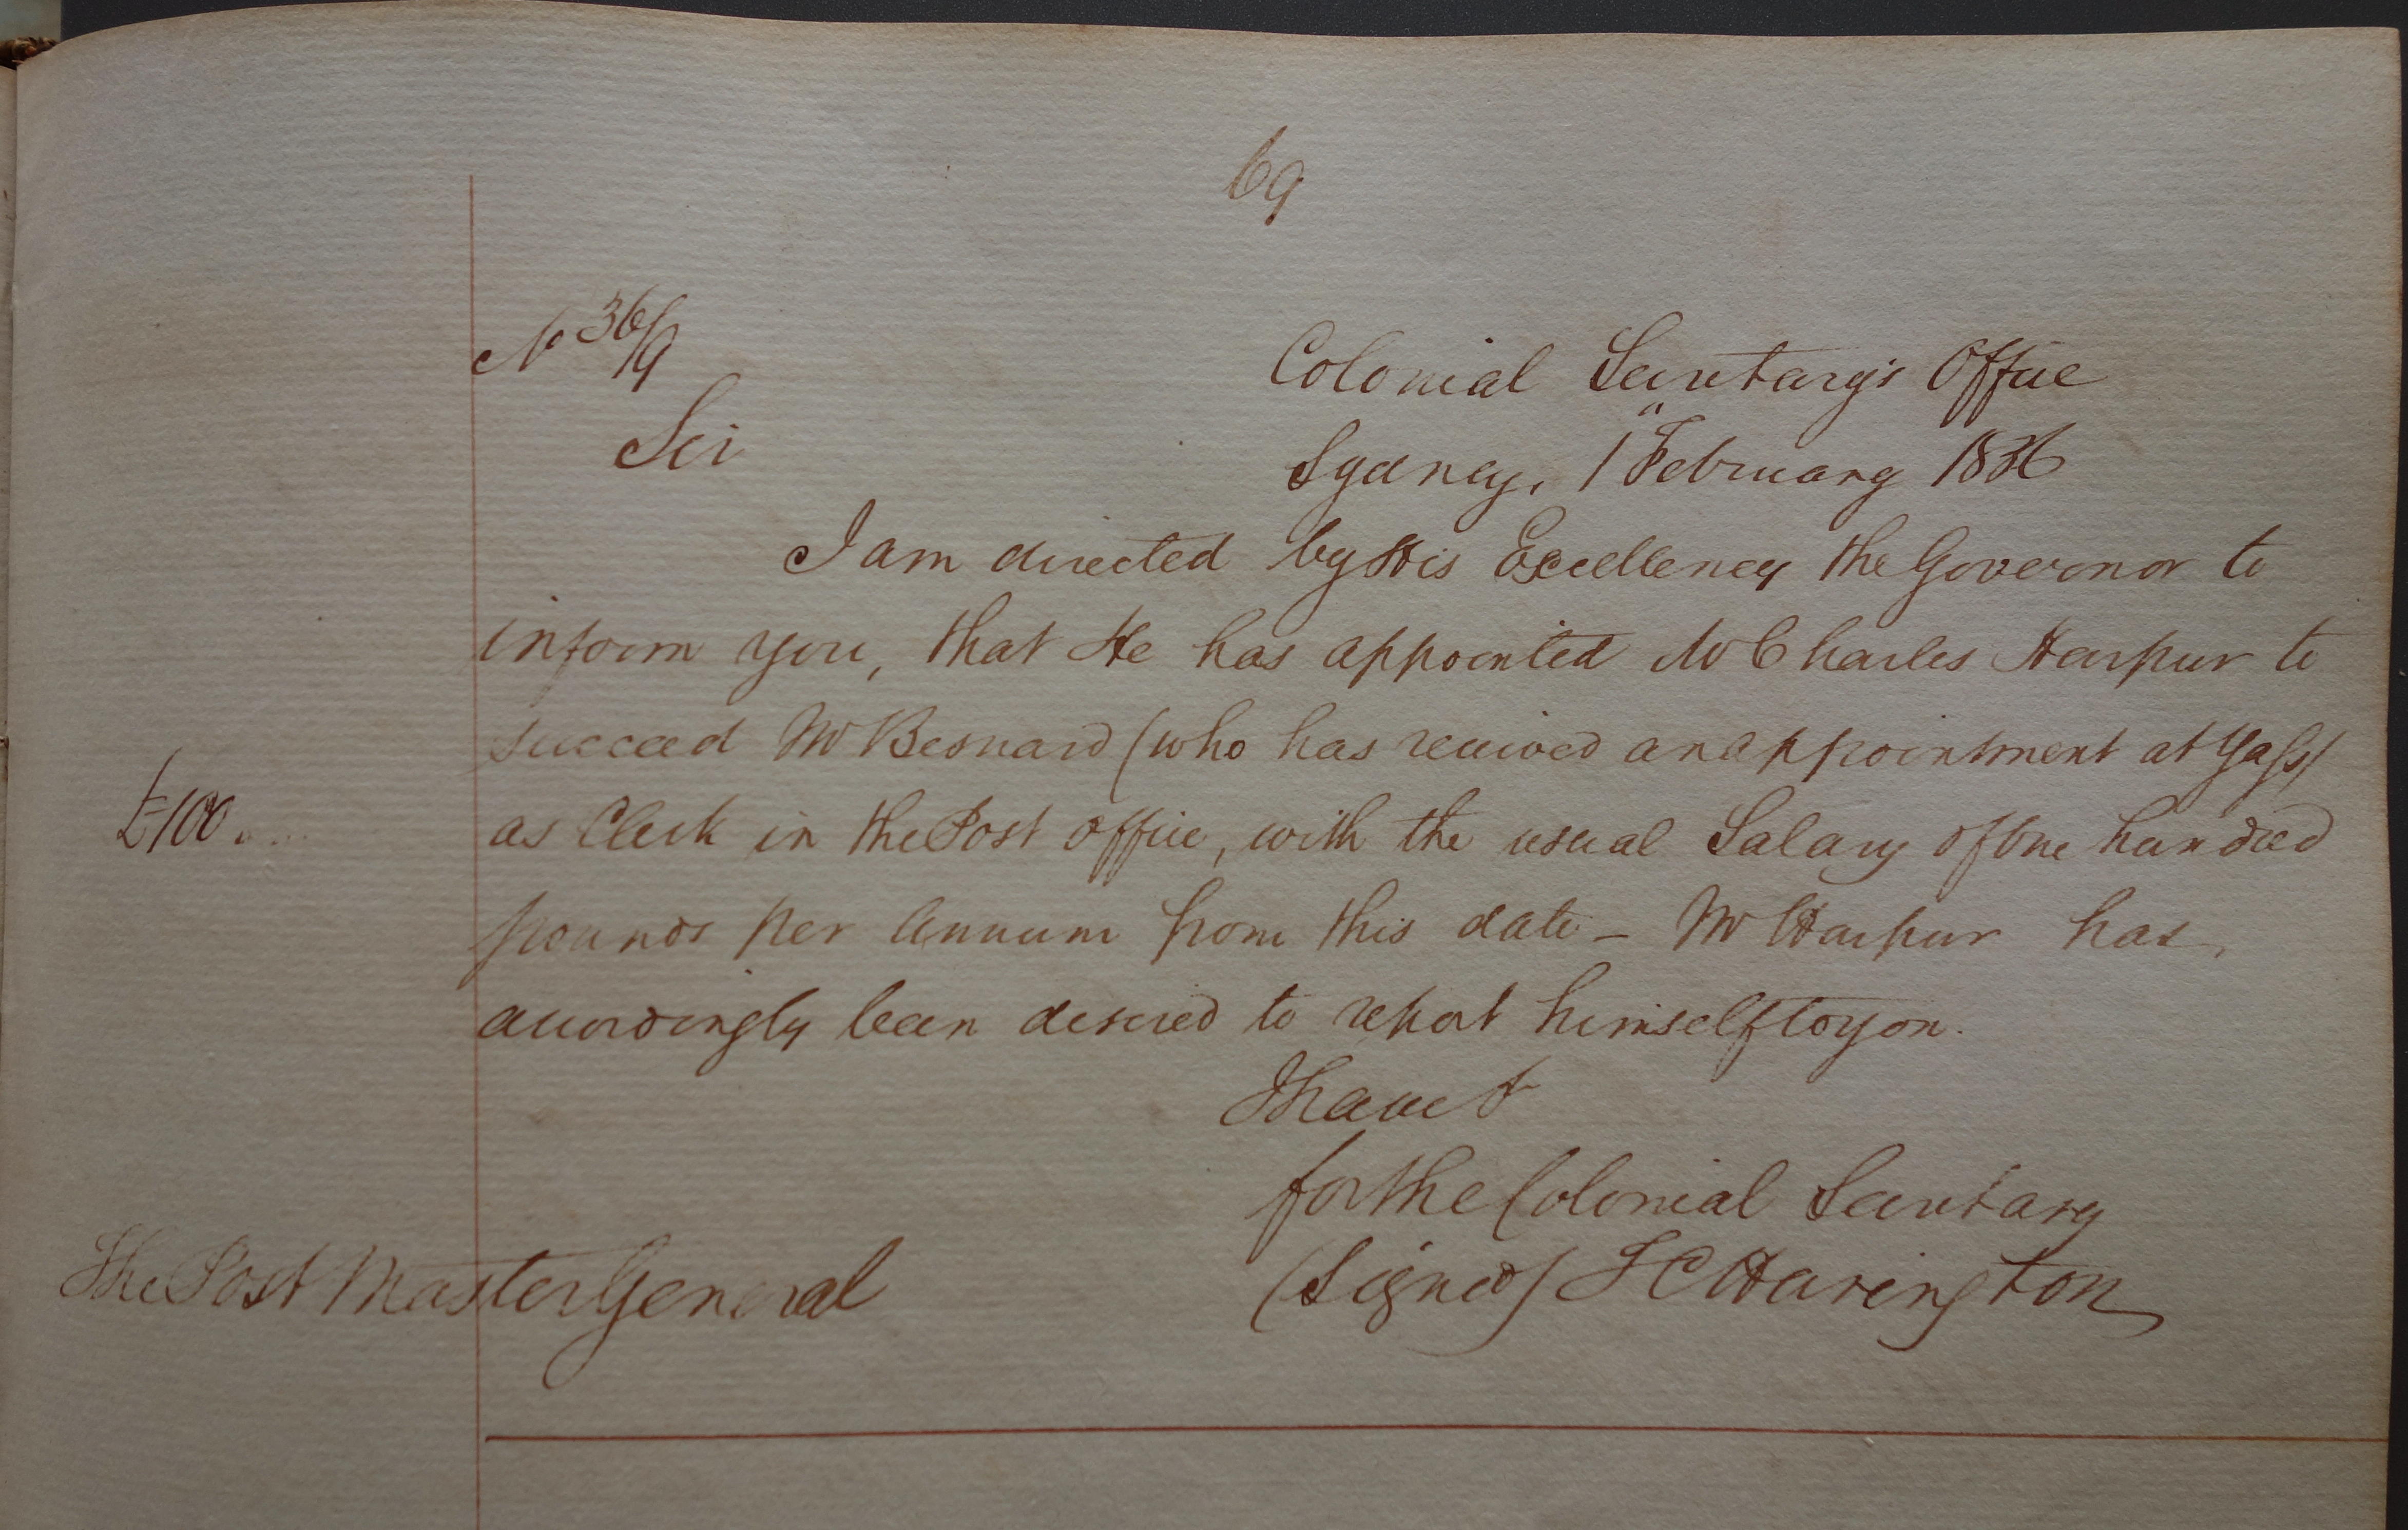 69
No 36/9
Colonial Secretary's Office
Sir
Sydney, 1" February 1836
I am directed by His Excellency the Governor to
inform you, that He has appointed Mr Charles Harpur to
succeed Mr Besnard (who has received an appointment at Yass)
£100
as Clerk in the Post office, with the usual Salary of One hundred
pounds per Annum from this date - Mr Harpur has,
accordingly been desired to report himself to you.
I have &
for the Colonial Secretary
The Post Master General
(Signed) T C Harington